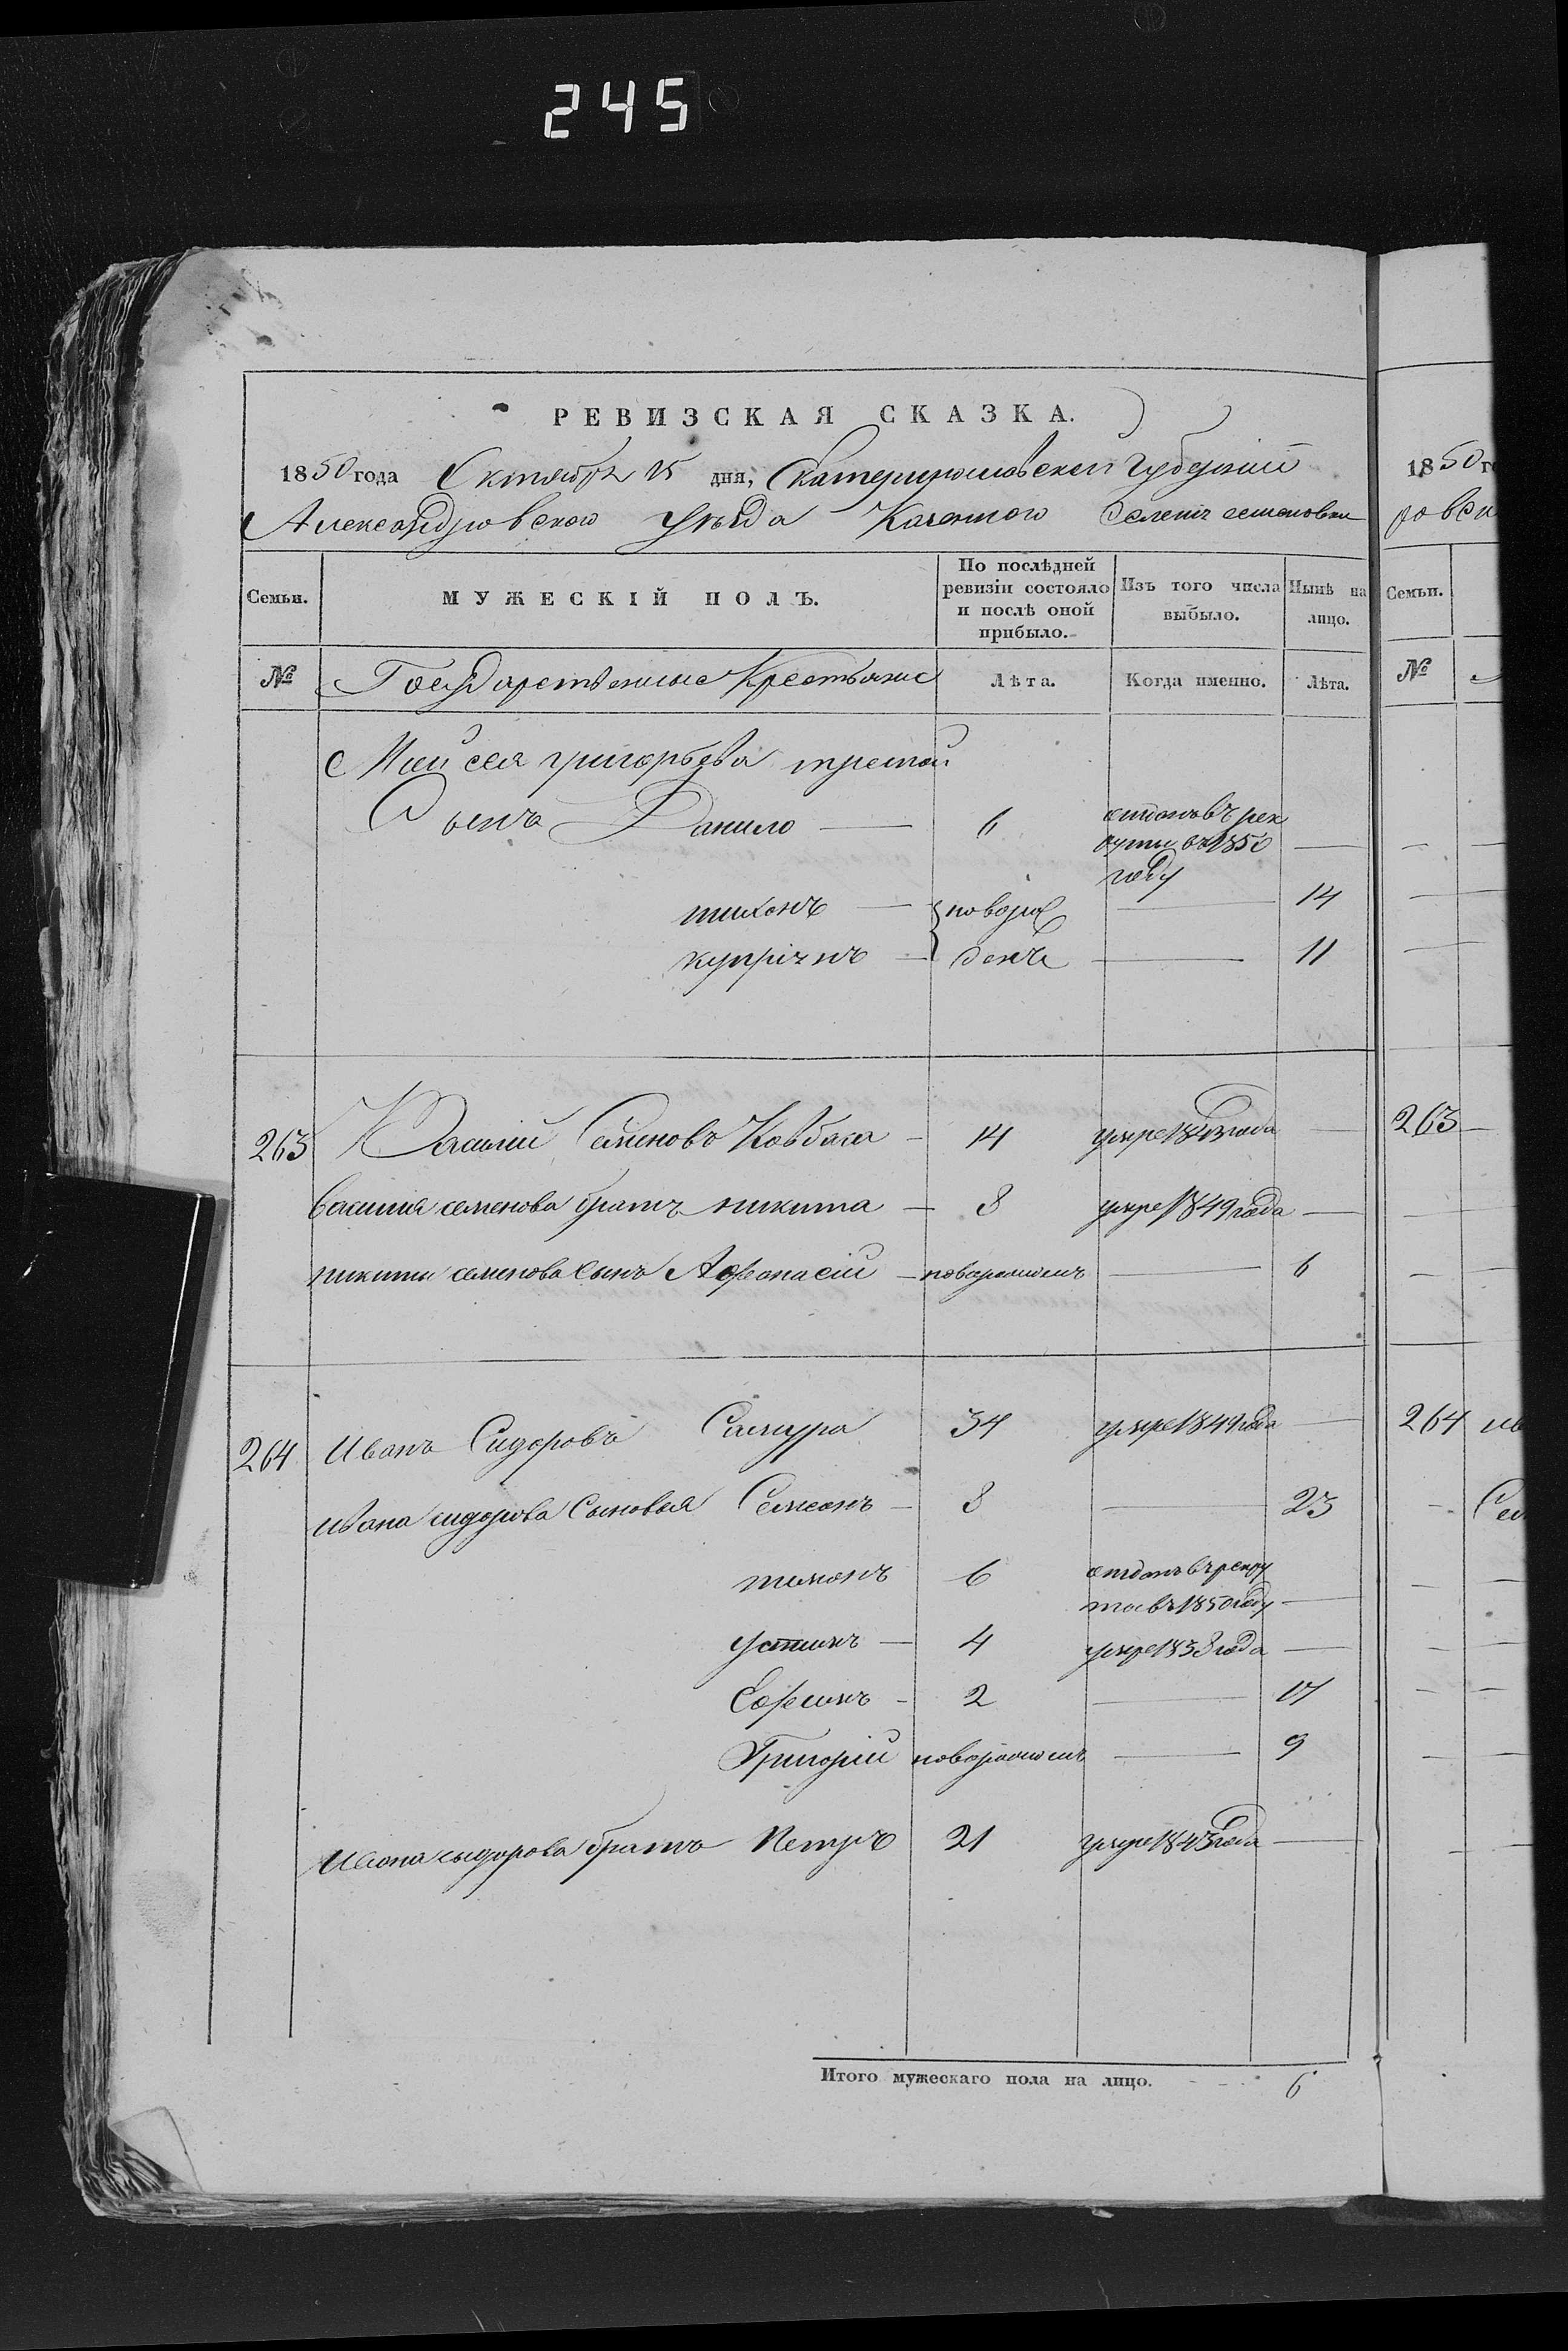 245
РЕВИЗСКАЯ СКАЗКА.
1850 года Октября 15 дня, Екатеринославской Губернии
Александровского Уезда Казенного Селения
По послѣдней ревизіи состояло и послѣ оной прибыло.
Изъ того числа выбыло.
Нынѣ на лицо.
Семьи. МУЖЕСКІЙ ПОЛЪ.
№ Государственные Крестьяне Лѣта. Когда именно. Лѣта.
Моисея григорьева третой
Сынъ Данило — 6 отданъ въ рек
руты въ 1850 —
году
тихонъ — новорож — 14
купріянъ — денъ — 11
263 Василий Семеновъ Ковбаса — 14 умре 1843 года —
Василия семенова братъ никита — 8 умре 1849 года —
никиты семенова Сынъ Афанасій — новорожденъ — 6
264 Иванъ Сидоровъ Самура 34 умре 1849 года —
ивана сидорова Сыновья Семенъ — 8 — 23
тихонъ 6 отданъ въ рекру
ты въ 1850 году —
Устинъ — 4 умре 1838 года —
Ефимъ — 2 — 17
Григорій новорожденъ — 9
Ивана сидорова братъ Петръ 21 умре 1843 года —
Итого мужескаго пола на лицо. 6
1850 го
ровск
Семьи.
№
263
264 ив
Сем